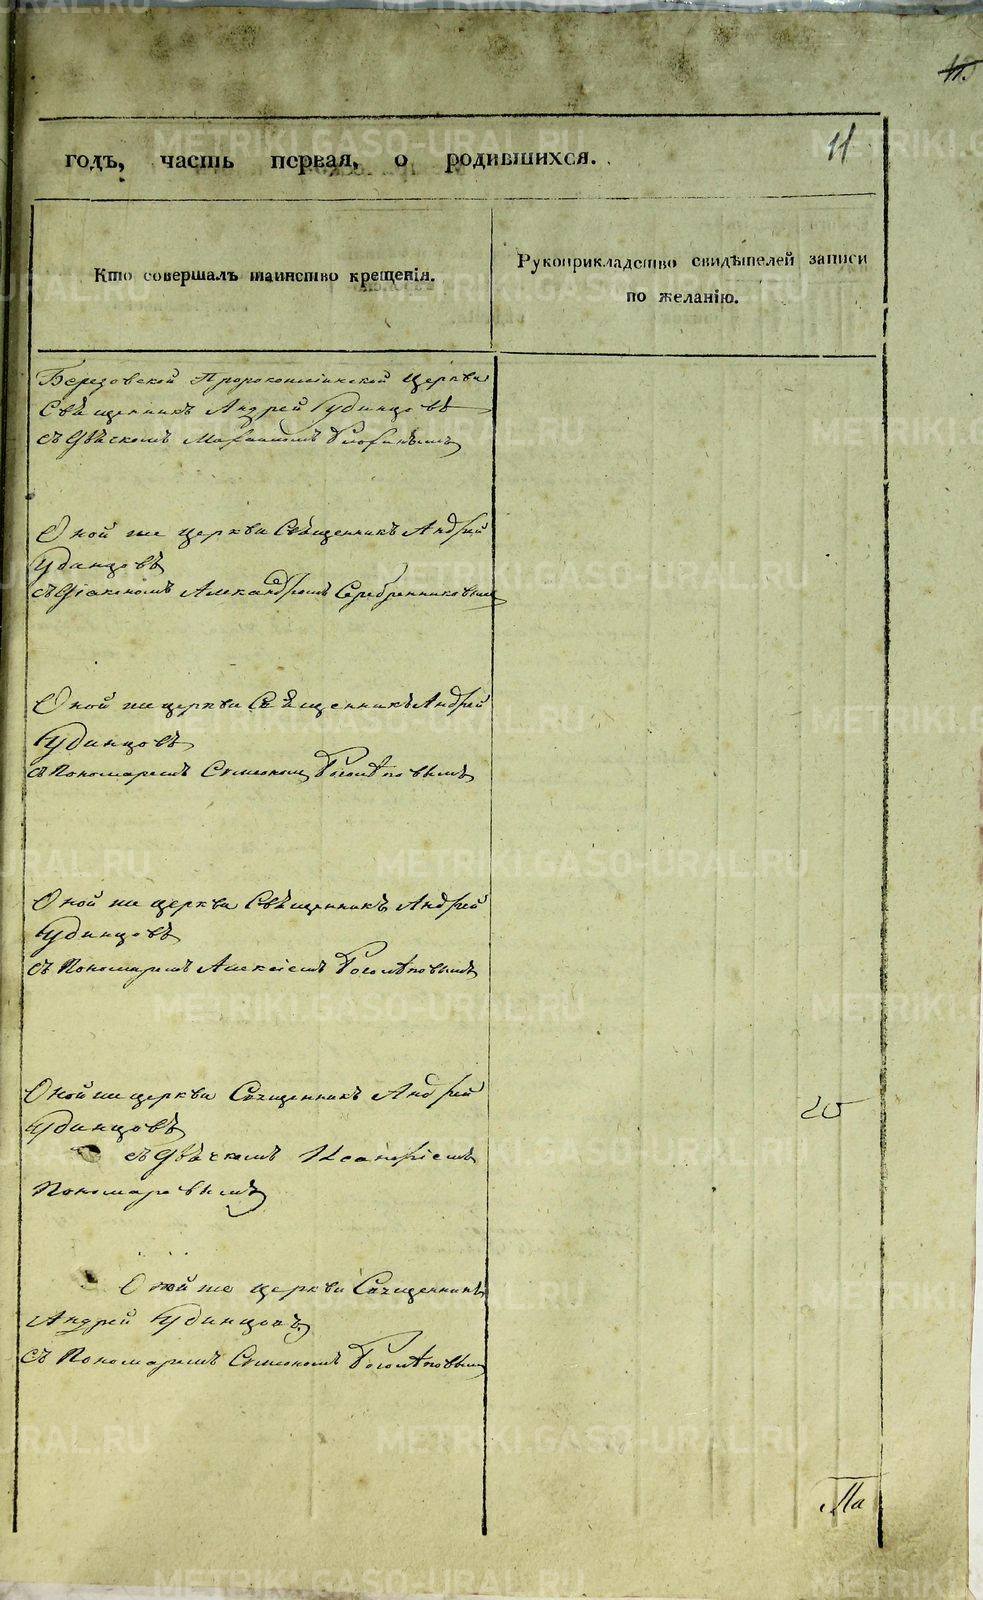 11
годъ, часть первая, о родившихся.
Кто совершалъ таинство крещенія.
Рукоприкладство свидѣтелей записи
по желанію.
Березовской Пророкоильинской церкви
Священникъ Андрей Удинцовъ
съ Дьячкомъ
Оной же церкви Священникъ Андрей
Удинцовъ
съ Діакономъ Александромъ Серебренниковымъ
Оной же церкви Священникъ Андрей
Удинцовъ
съ Пономаремъ Симеономъ Боголѣповымъ
Оной же церкви Священникъ Андрей
Удинцовъ
съ Пономаремъ Алексіемъ Боголѣповымъ
Оной же церкви Священникъ Андрей
Удинцовъ
съ Дьячкомъ
Пономаревымъ
Оной же церкви Священникъ
Андрей Удинцовъ
съ Пономаремъ Симеономъ Боголѣповымъ
METRIKI.GASO-URAL.RU